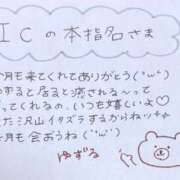 ICの本指名さま
月も来てくれてありがとう(˘ω˘)
ずると居ると癒される〜って
ってくれるの、いつも嬉しいよ♡
た沢山イタズラするからねッちゃ
月も会おうね(˘ω˘)
ゆずる